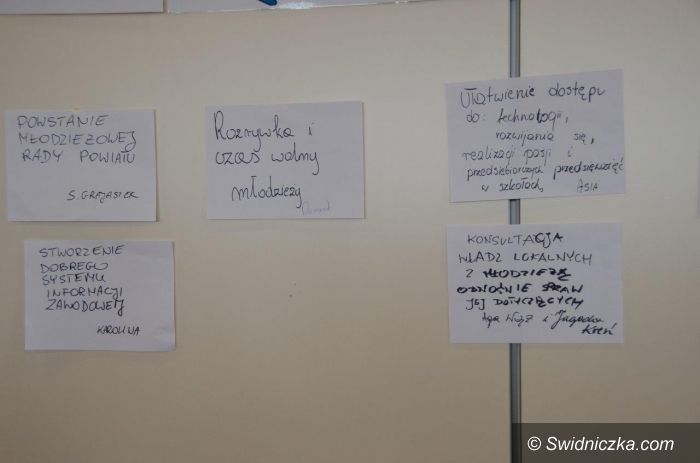 POWSTANIE
MŁODZIEŻOWEJ
RADY POWIATU
S. GRAJASZEK
Rozrywka i
czas wolny
młodzieży
Ułatwienie dostępu
do: technologii,
rozwijania się,
realizacji pasji i
przedsiębiorczych przedsięwzięć
w szkołach, ASIA
STWORZENIE
DOBREGO
SYSTEMU
INFORMACJI
ZAWODOWEJ
KAROLINA
KONSULTACJA
WŁADZ LOKALNYCH
Z MŁODZIEŻĄ
ODNOŚNIE SPRAW
JEJ DOTYCZĄCYCH
Aga i Jagoda
© Swidniczka.com